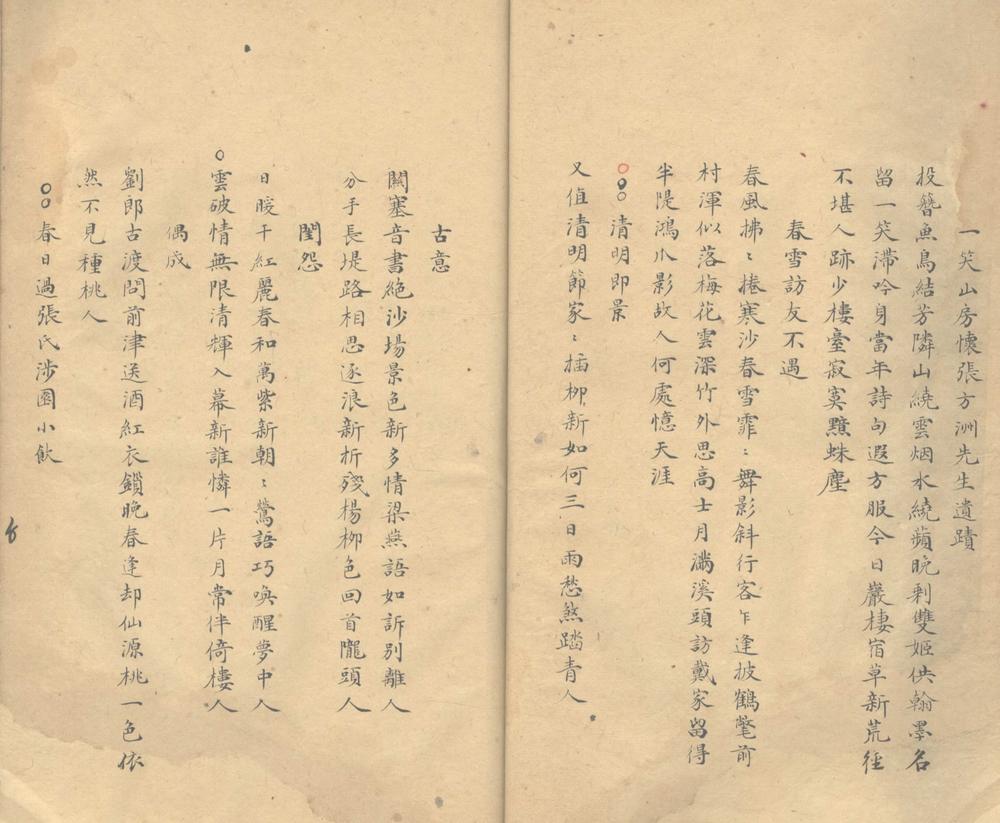 一笑山房懷張方洲先生遺蹟
投簪魚鳥結芳隣山繞雲烟水繞蘋晚剩雙姬供翰墨名
留一笑滯吟身當年詩句遐方服今日巖棲宿草新荒徑
不堪人跡少樓臺寂寞黯蛛塵
春雪訪友不遇
春風拂〻捲寒沙春雪霏〻舞影斜行客乍逢披鶴氅前
村渾似落梅花雲深竹外思高士月滿溪頭訪戴家留得
半隄鴻爪影故人何處憶天涯
清明即景
又值清明節家〻插柳新如何三日雨愁煞踏青人
古意
關塞音書絕沙場景色新多情梁燕語如訴別離人
分手長堤路相思逐浪新折殘楊柳色回首隴頭人
閨怨
日暖千紅麗春和萬紫新朝〻鶯語巧喚醒夢中人
雲破情無限清輝入幕新誰憐一片月常伴倚樓人
偶成
劉郎古渡問前津送酒紅衣鎖晚春逢却仙源桃一色依
然不見種桃人
春日過張氏涉園小飲